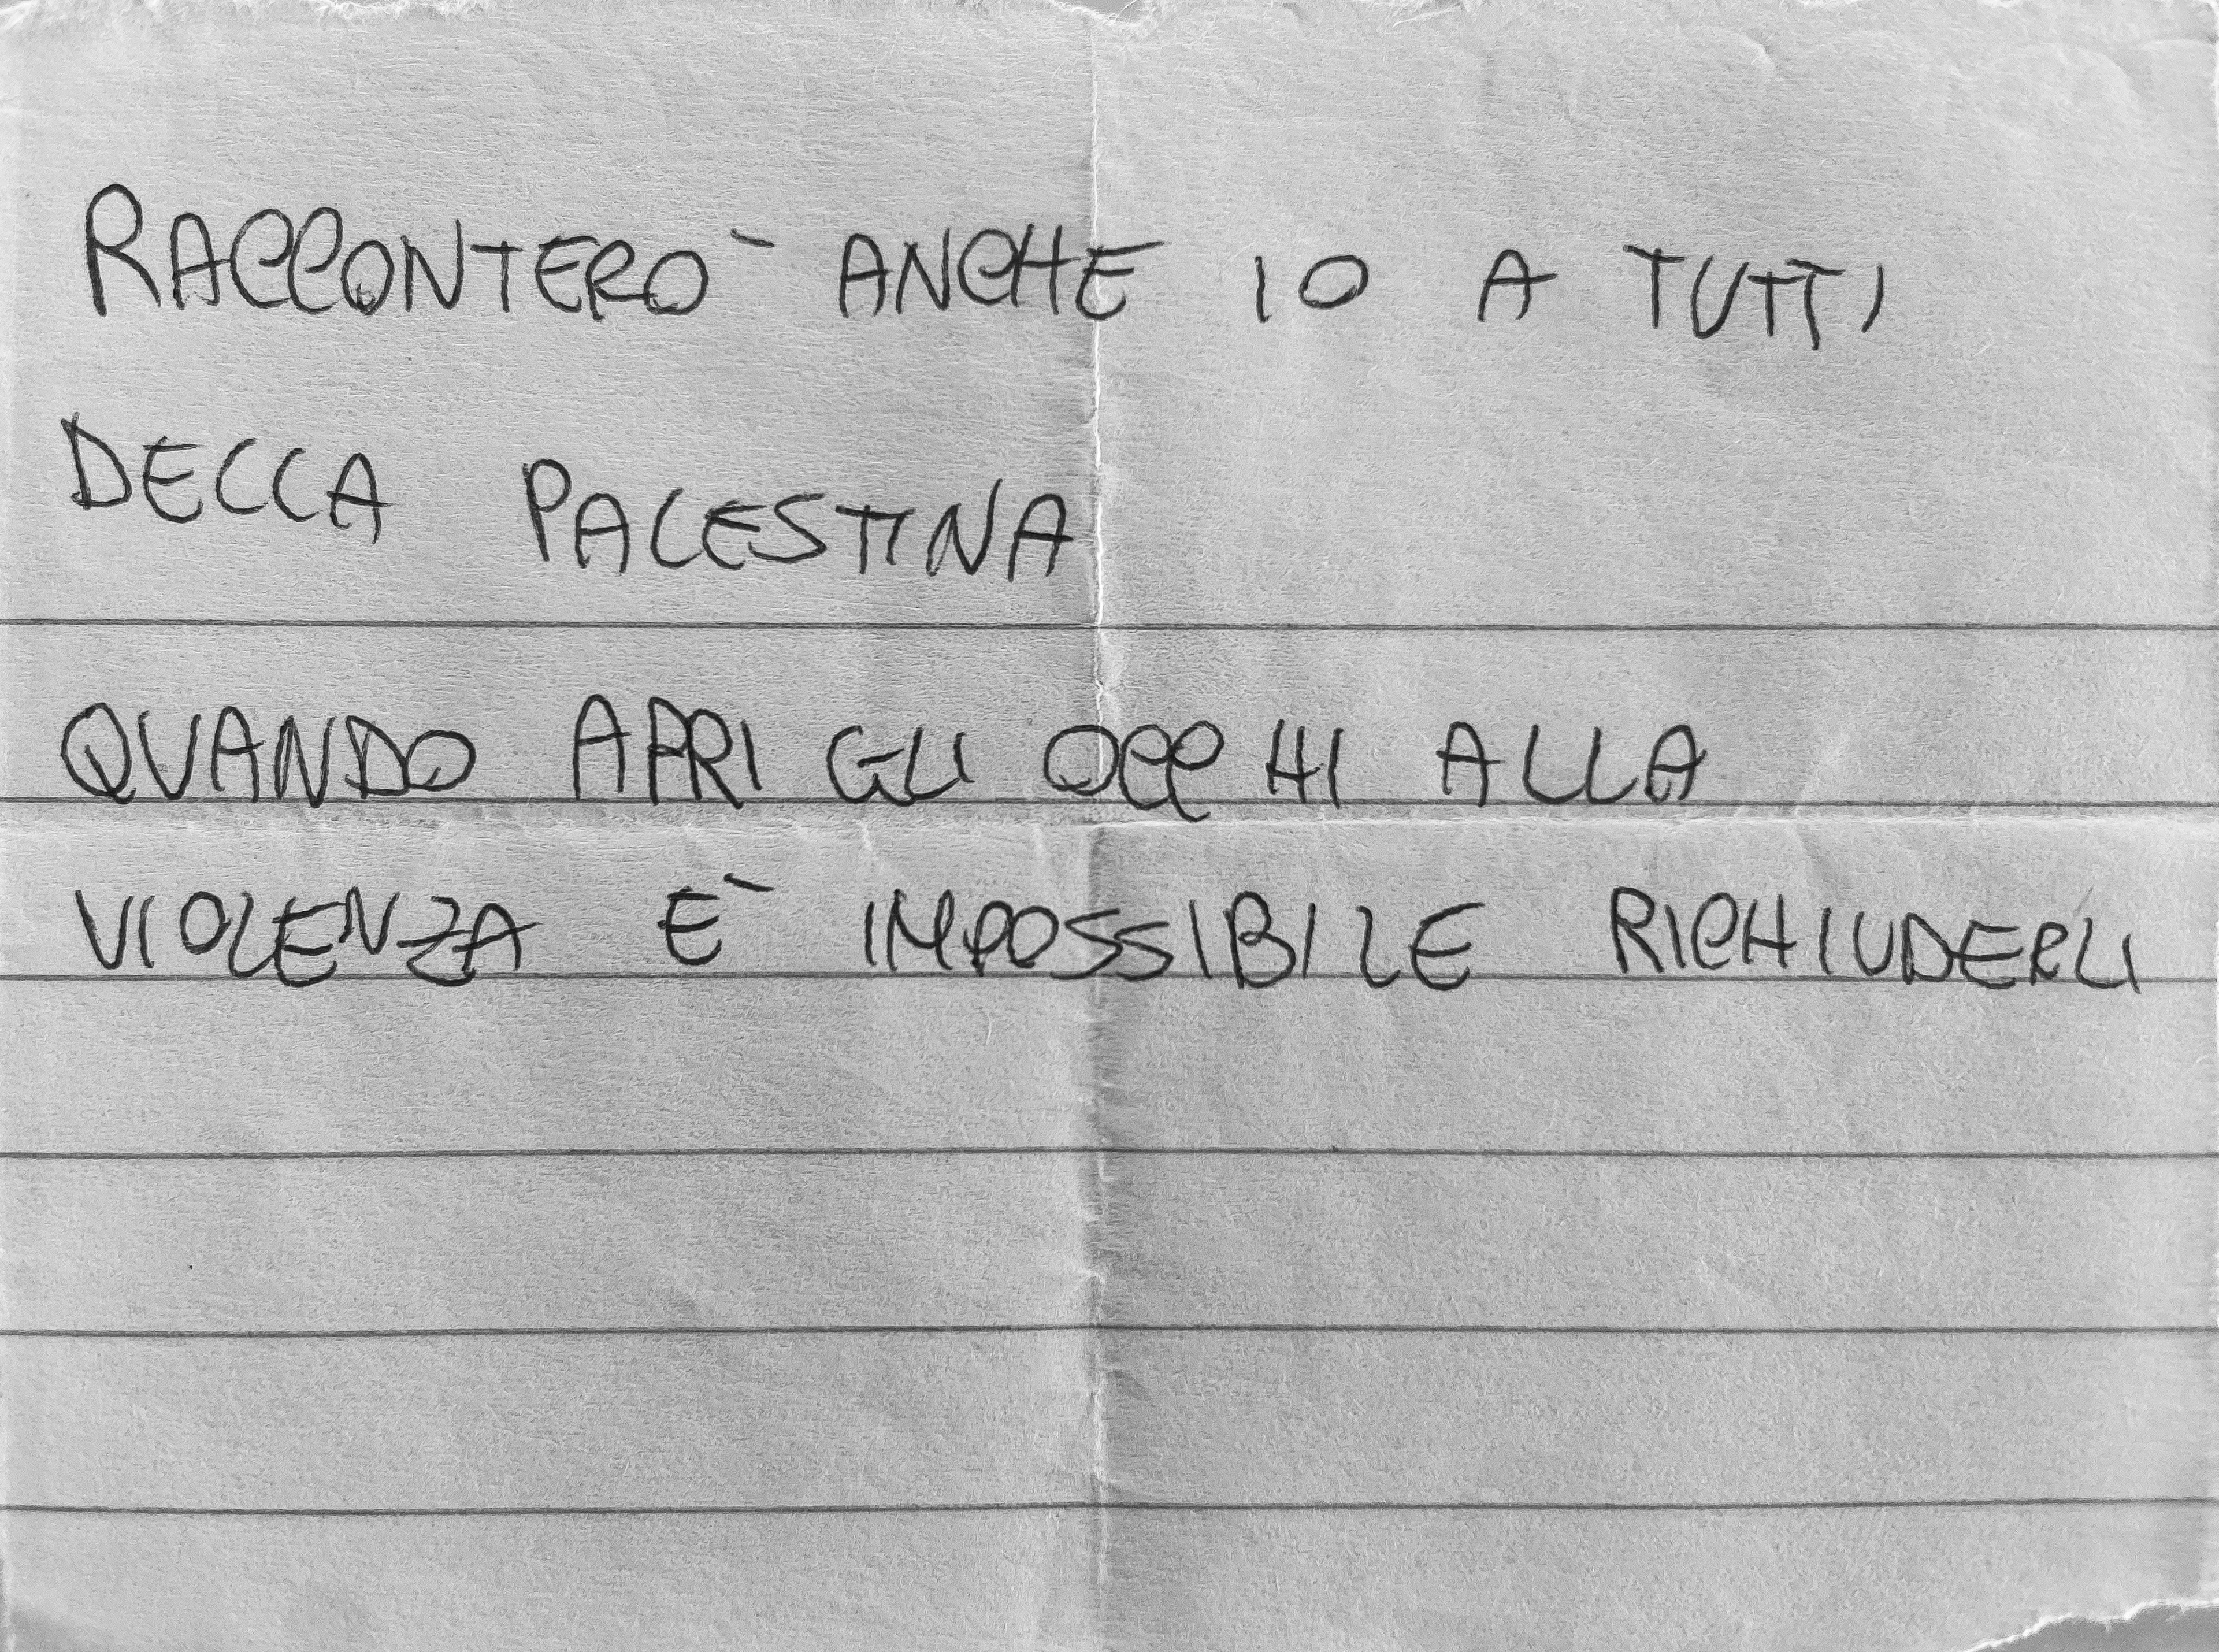 RACCONTERO' ANCHE IO A TUTTI
DELLA PALESTINA
QUANDO APRI GLI OCCHI ALLA
VIOLENZA E' IMPOSSIBILE RICHIUDERLI